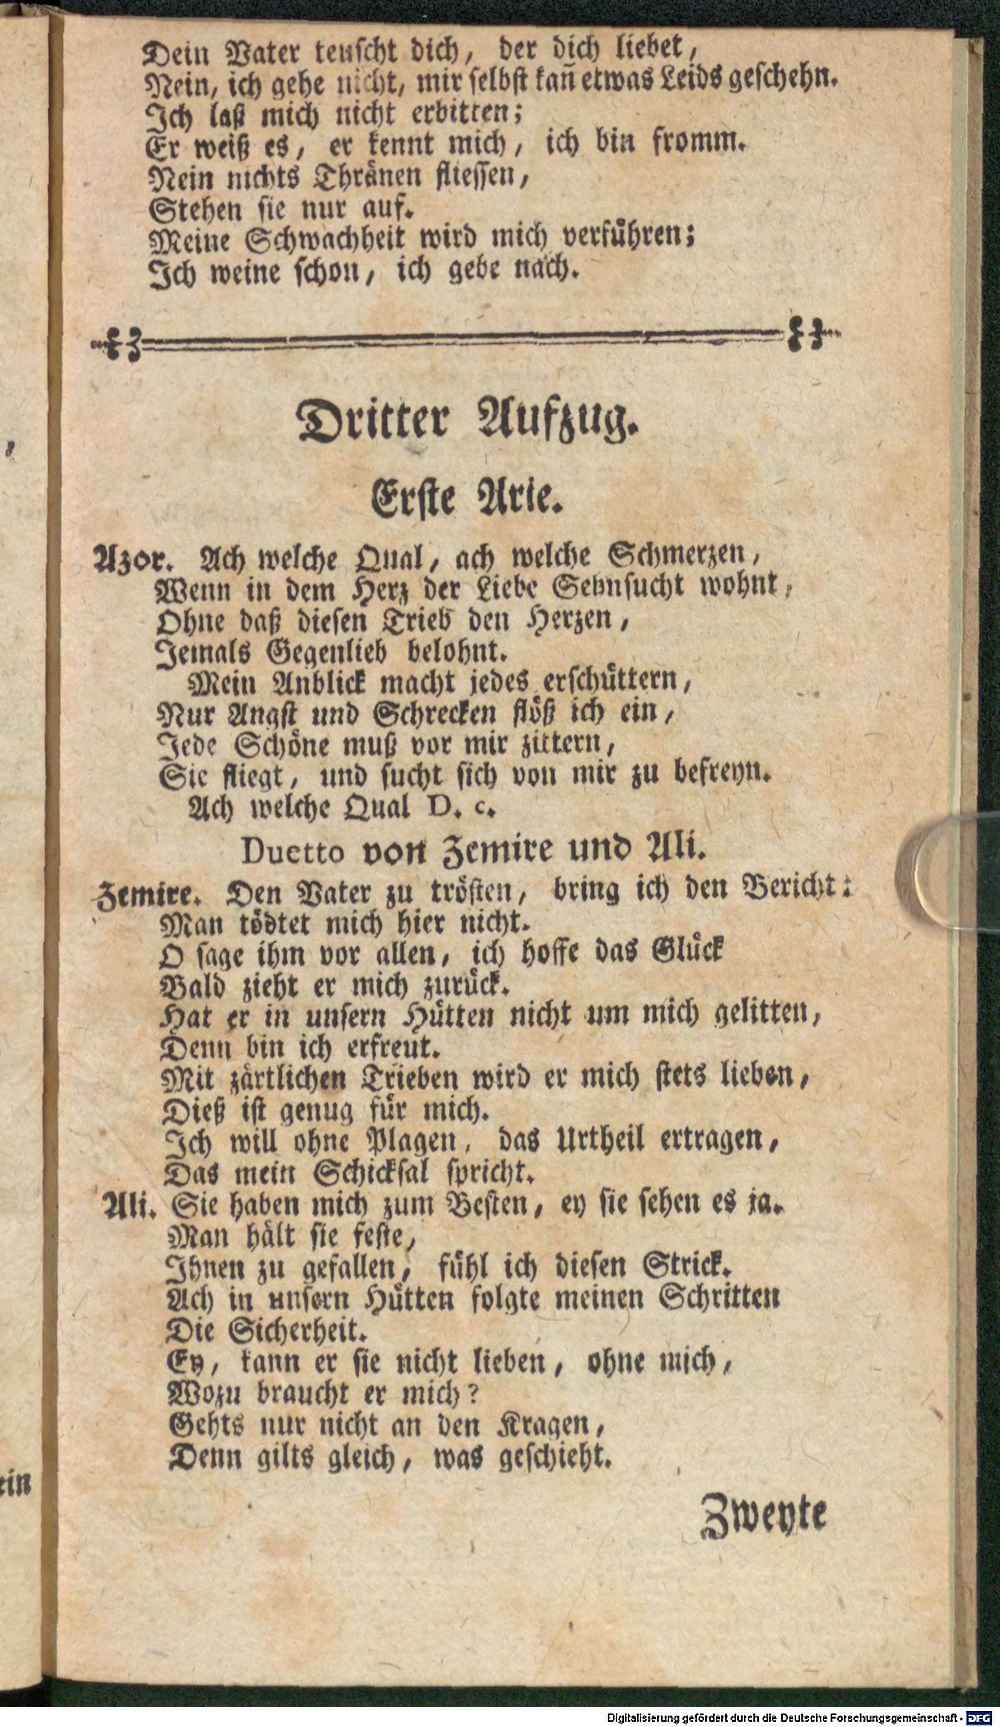 Dein Vater teuscht dich, der dich liebet,
Nein, ich gehe nicht, mir selbst kañ etwas Leids geschehn.
Ich laß mich nicht erbitten;
Er weiß es, er kennt mich, ich bin fromm.
Nein nichts Thränen fliessen,
Stehen sie nur auf.
Meine Schwachheit wird mich verführen;
Ich weine schon, ich gebe nach.
Dritter Aufzug.
Erste Arie.
Azor. Ach welche Qual, ach welche Schmerzen,
Wenn in dem Herz der Liebe Sehnsucht wohnt,
Ohne daß diesen Trieb den Herzen,
Jemals Gegenlieb belohnt.
Mein Anblick macht jedes erschüttern,
Nur Angst und Schrecken flöß ich ein,
Jede Schöne muß vor mir zittern,
Sie fliegt, und sucht sich von mir zu befreyn.
Ach welche Qual D. c.
Duetto von Zemire und Ali.
Zemire. Den Vater zu trösten, bring ich den Bericht:
Man tödtet mich hier nicht.
O sage ihm vor allen, ich hoffe das Glück
Bald zieht er mich zurück.
Hat er in unsern Hütten nicht um mich gelitten,
Denn bin ich erfreut.
Mit zärtlichen Trieben wird er mich stets lieben,
Dieß ist genug für mich.
Ich will ohne Plagen, das Urtheil ertragen,
Das mein Schicksal spricht.
Ali. Sie haben mich zum Besten, ey sie sehen es ja.
Man hält sie feste,
Ihnen zu gefallen, fühl ich diesen Strick.
Ach in unsern Hütten folgte meinen Schritten
Die Sicherheit.
Ey, kann er sie nicht lieben, ohne mich,
Wozu braucht er mich?
Gehts nur nicht an den Kragen,
Denn gilts gleich, was geschieht.
Zweyte
ein
Digitalisierung gefördert durch die Deutsche Forschungsgemeinschaft - DFG